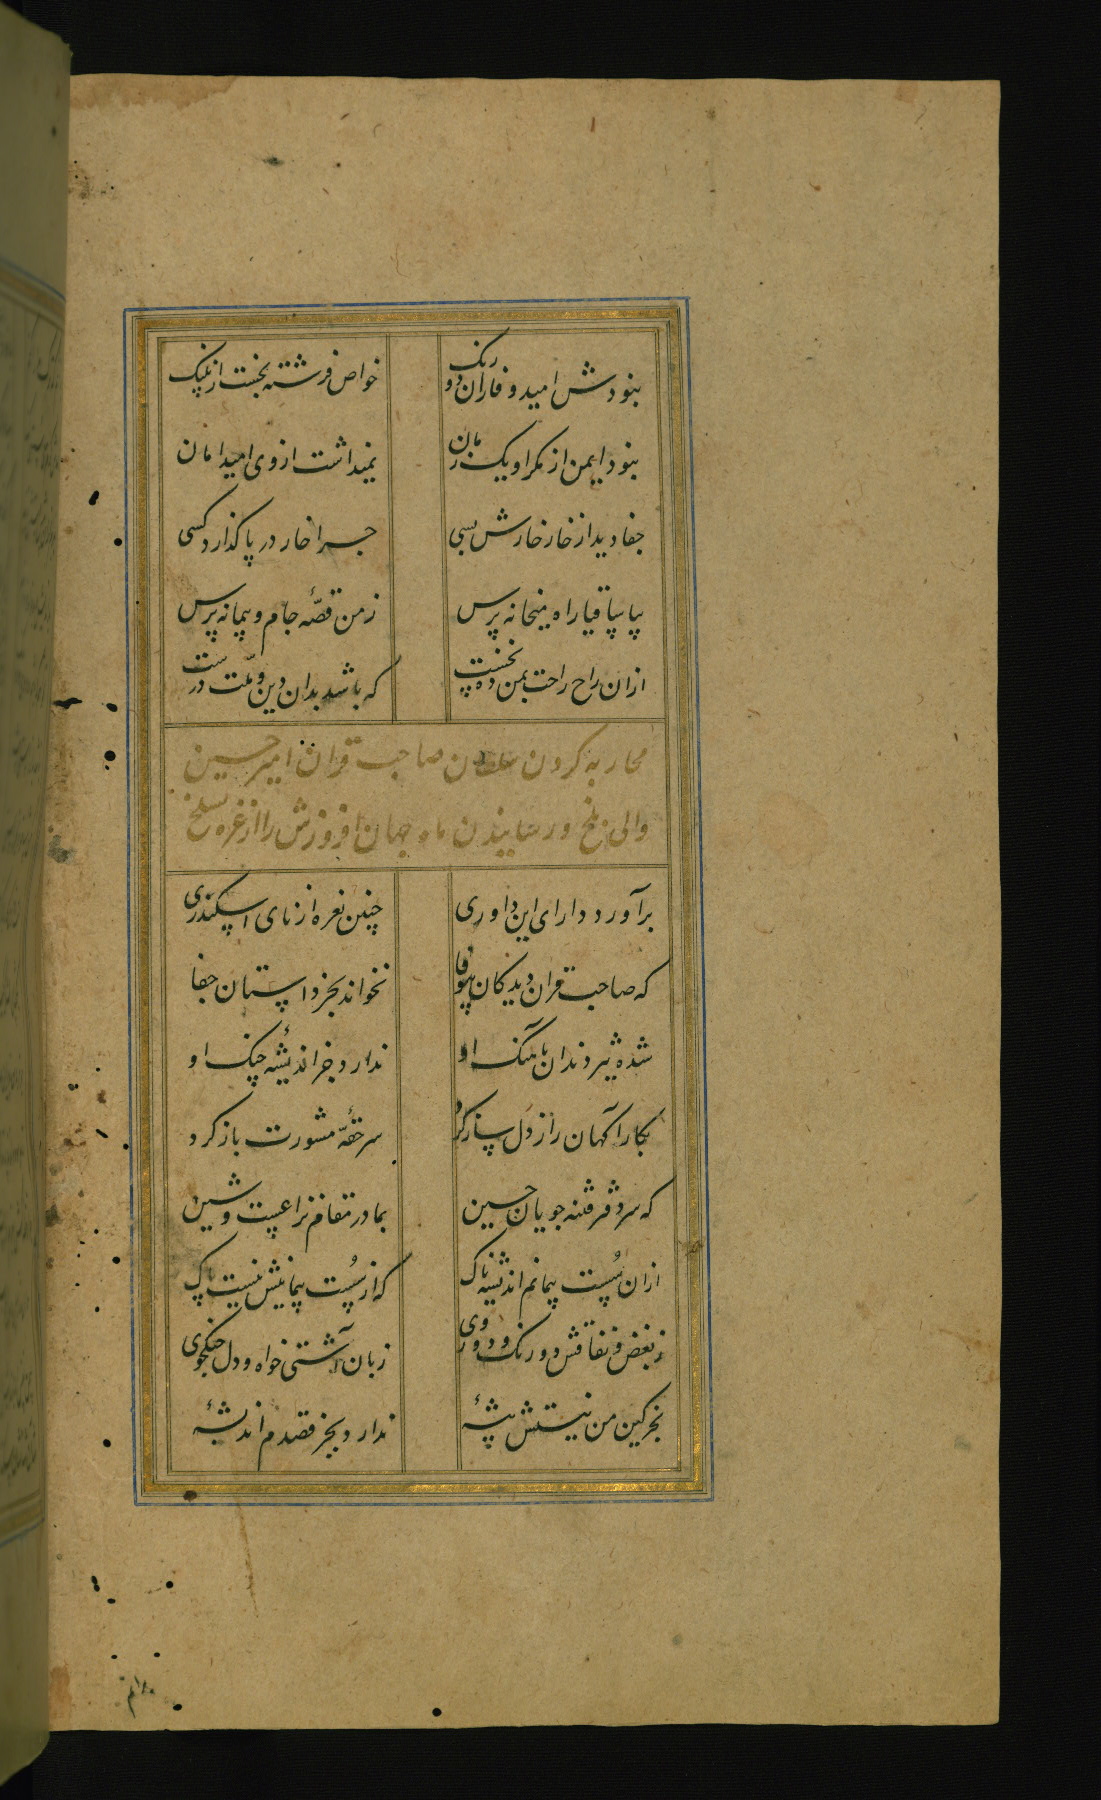 نبودش امید وفا زان دو رنک خواص فرشته نجست از پلنک
نبود ایمن از مکر او یک زمان نمیداشت از وی امید امان
جفا دید از خار خارش بسی چرا خار در پا کذارد کسی
بیا ساقیا راه میخانه پرس ز من قصهٔ جام و پیمانه پرس
ازان راح راحت بمن ده نخست که باشد بدان دین و ملت درست
محاربه کردن سلطان صاحب قران امیر حسین
والی بلخ و رسانیدن ماه جهان افروزش را از غره بسلخ
برآورد دارای این داوری چنین نعره از نای اسکندری
که صاحب قران دید کان بیوفا نخواند بجز داستان جفا
شده تیز دندان باهنک او ندارد جز اندیشهٔ جنک او
بکار آکهان راز دل ساز کرد سر حقهٔ مشورت باز کرد
که سر دفر فتنه جویان حسین بما در مقام نزاعست و شین
ازان سست پیمانم اندیشه ناک که از سست پیمانیش نیست باک
ز بغض و نفاقش دو رنک و دو روی زبان آشتی خواه و دل جنکجوی
بجز کین من نیستش پیشهٔ ندارد بجز قصدم اندیشهٔ